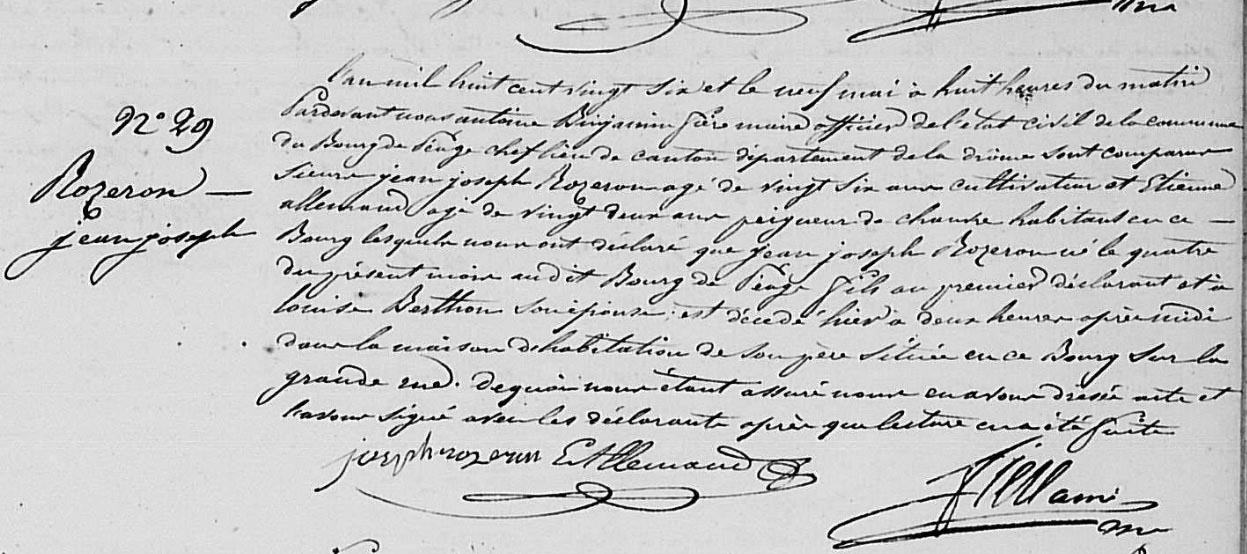 N° 29
Rozeron
jean joseph
L'an mil huit cent vingt six et le neuf mai à huit heures du matin
Pardevant nous antoine Binjamin maire officier de l'état civil de la commune
du Bourg de Péage chef lieu de canton département de la drôme sont comparus
Sieurs jean joseph Rozeron agé de vingt six ans cultivateur et Etienne
allemand agé de vingt deux ans peigneur de chanvre habitans en ce
Bourg lesquels nous ont déclaré que jean joseph Rozeron né le quatre
du présent mois audit Bourg de Péage fils au premier déclarant et à
louise Berthon son épouse, est décédé hier à deux heures après midi
dans la maison d'habitation de son père située en ce Bourg sur la
grande rue. de quoi nous étant assuré nous en avons dressé acte et
l'avons signé avec les déclarants après que lecture en a été faite
joseph rozeron E Allemand